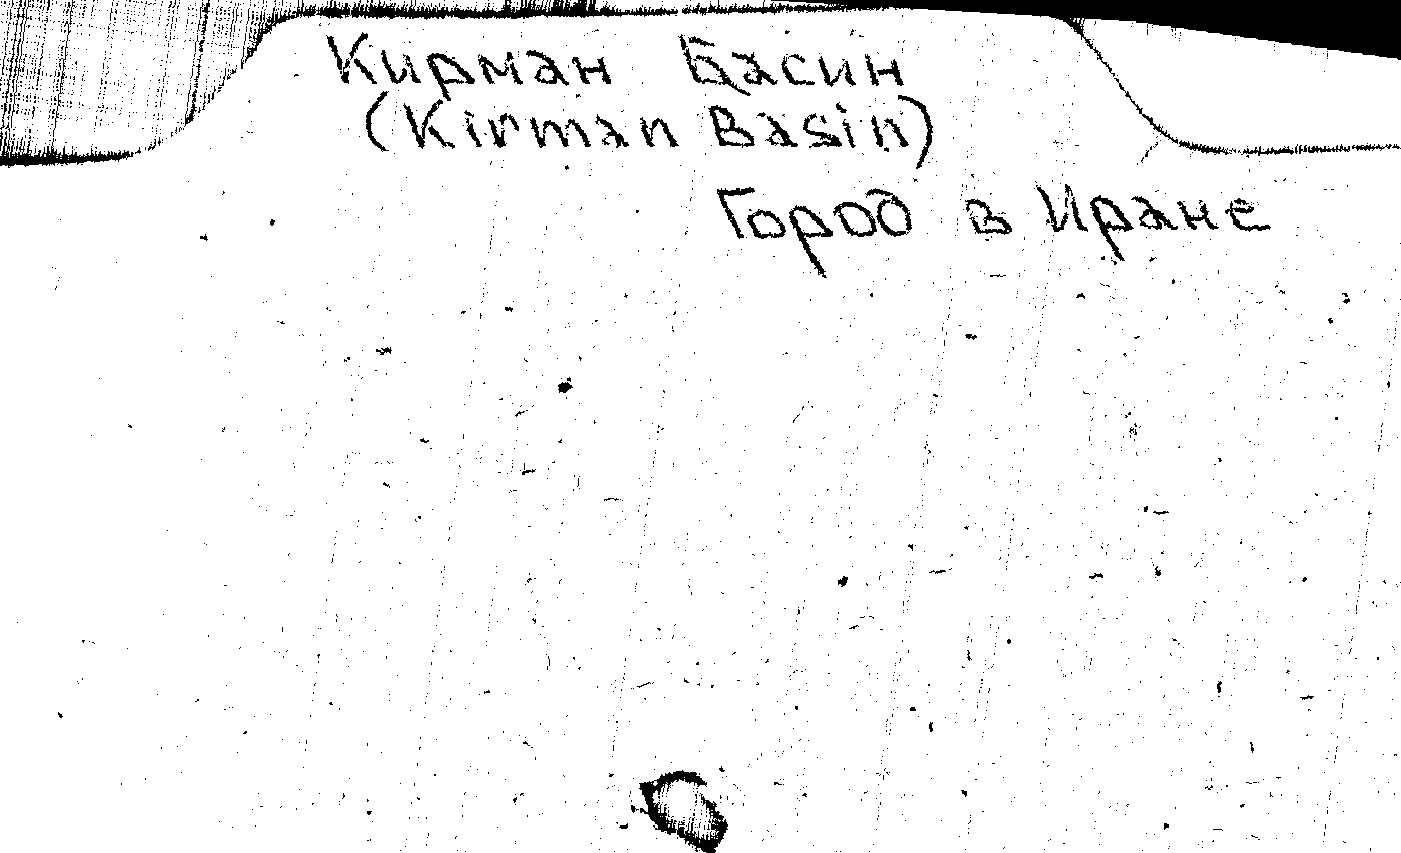 Кирман Басин
(Kirman Basin)
Город в Иране